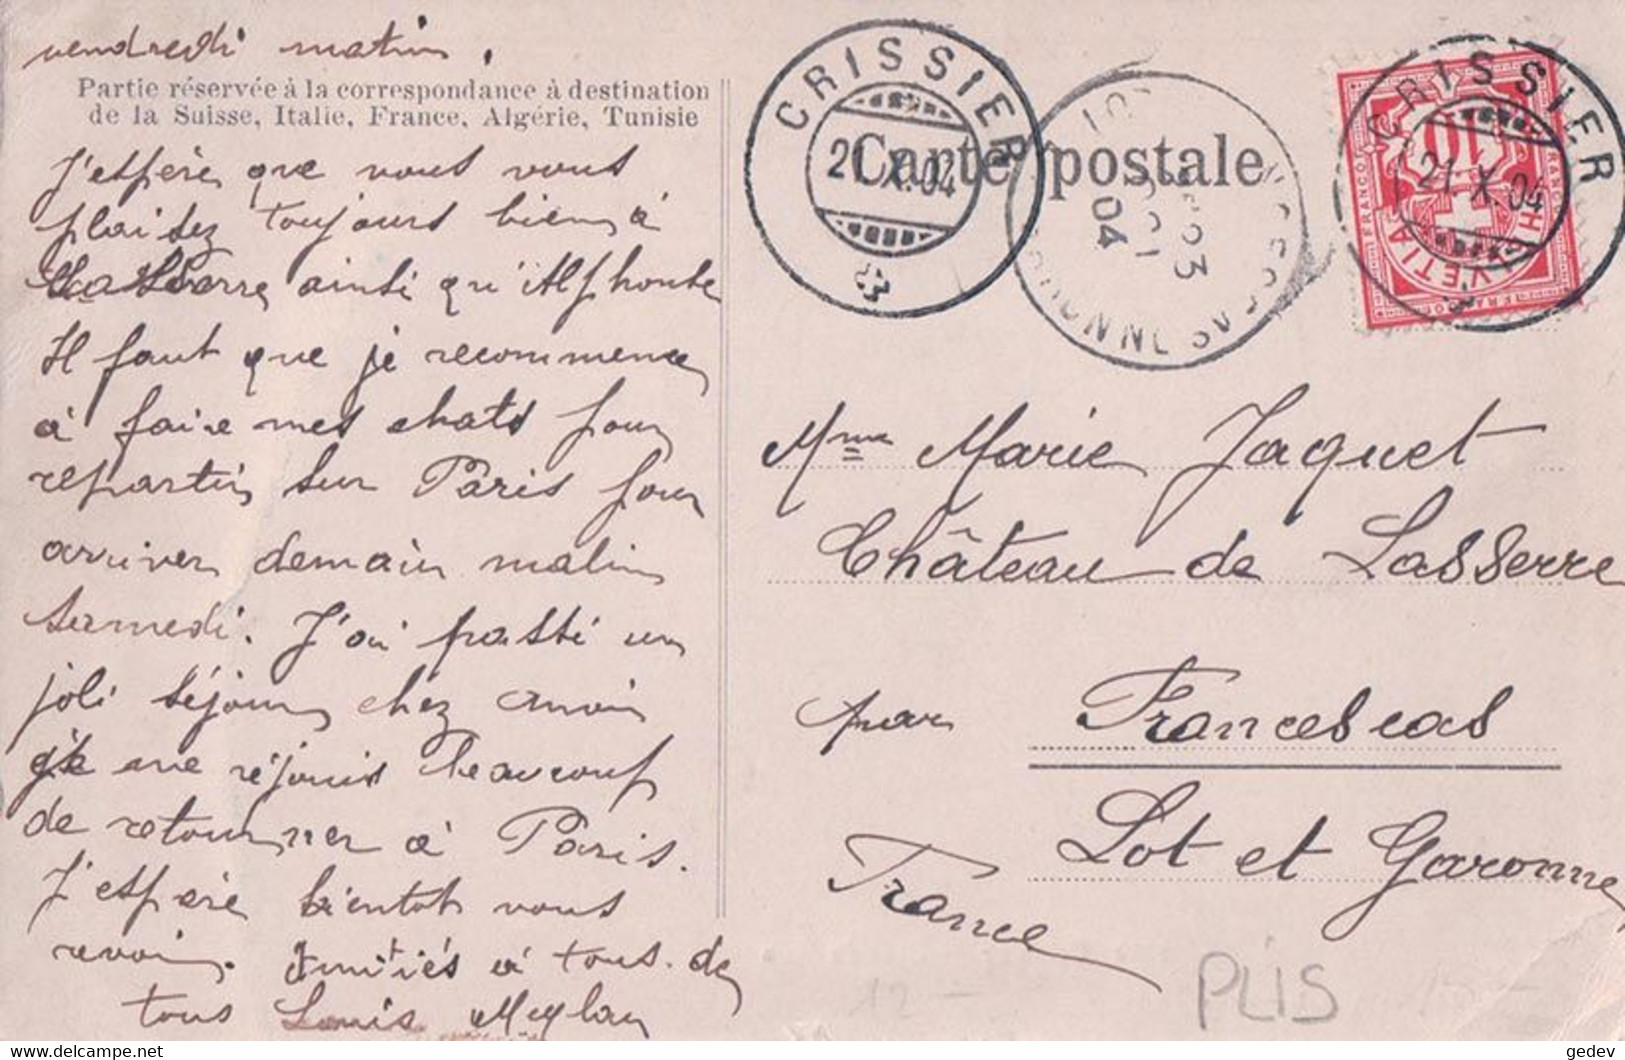 vendredi matin.
Partie réservée à la correspondance à destination
de la Suisse, Italie, France, Algérie, Tunisie
J'espère que vous vous
plaisez toujours bien à
Lasserre ainsi qu'Alphonse
Il faut que je recommence
à faire mes chats pour
repartir sur Paris pour
arriver demain matin
samedi. J'ai passé un
joli séjour chez
je me réjouis beaucoup
de retourner à Paris.
J'espère bientot vous
revoir. Amitiés à tous. de
tous Louis Meylan
Carte postale
CRISSIER
21.X.04
04
CRISSIER
21.X.04
FRANCO
10
HELVETIA
Mme Marie Jaquet
Château de Lasserre
par Francescas
Lot et Garonne
France
PLIS
12 -
delcampe.net
gedev